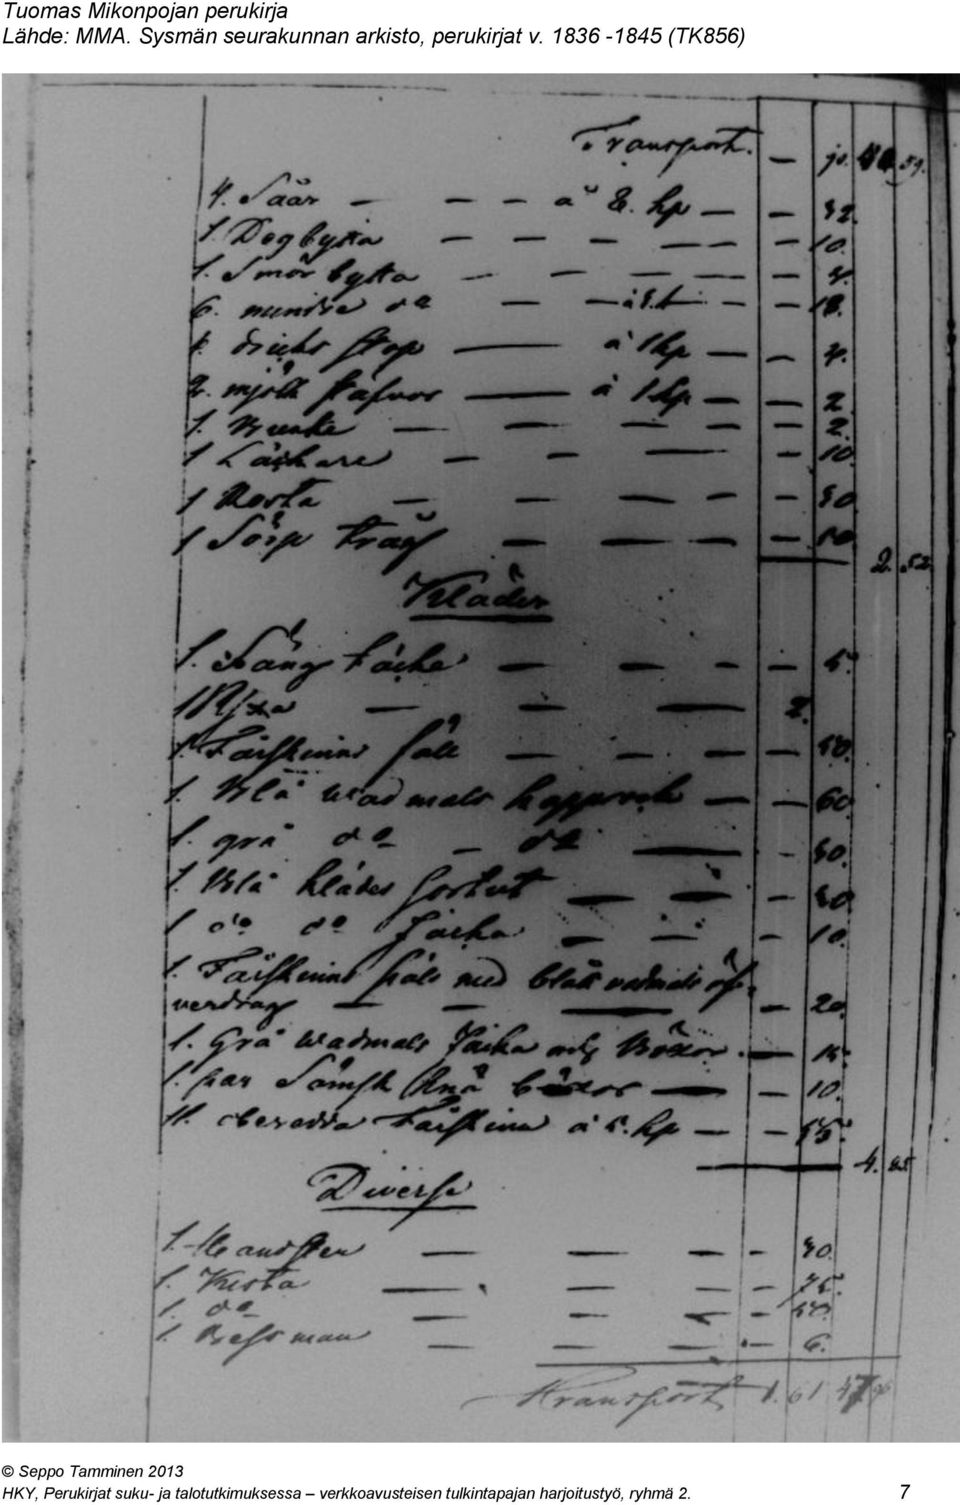 Tuomas Mikonpojan perukirja
Lähde: MMA. Sysmän seurakunnan arkisto, perukirjat v. 1836 -1845 (TK856)
Transport. —
4. Såår — — — à 8. kp — — 32.
1. Degbytta — — — — — 10.
1. Smör bytta — — — — —
6. mindre do — — — — 18.
dricks stop — à 1 kp — — 4.
2. mjölk stäfvor — à 1 kp — — 2.
1. Bunke — — — — — 2.
1 — — — — 10.
1 Rosta — — — — — 30
1 Sörp tråg — — — — 10
2. 52.
Kläder
1. Säng täcke — — — — 5.
1 — — — 2.
1. Fårskinns fäll — — — — 50.
1. Blå wadmals kapprock — — 60.
1. grå do — do — — 30.
1. Blå klädes — — — 30
1 do do Jacka — — — 10.
1. Fårskinns päls med blått vadmals öf-
verdrag — — — — 20.
1. Grå wadmals Jacka och Böxor. — 15.
1. par Sämsk Knä böxor — — 10.
11. oberedda Fårskinn à 5. kp — — 55.
4. 85
Diverse
1. — — — — 30.
1. Kista — — — — 75.
1. do — — — —
1. Bessman — — — — 6.
Transport 1. 61 47 96
© Seppo Tamminen 2013
HKY, Perukirjat suku- ja talotutkimuksessa – verkkoavusteisen tulkintapajan harjoitustyö, ryhmä 2. 7